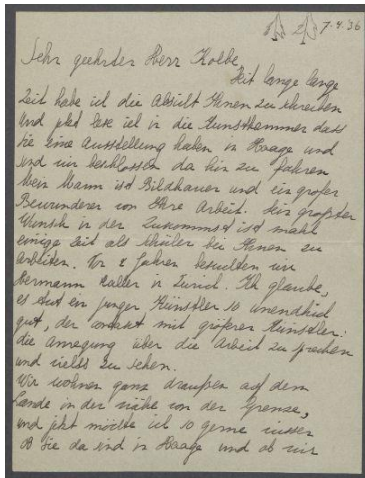 7.4.36
Sehr geehrter Herr Kolbe,
Seit lange lange
Zeit habe ich die Absicht Ihnen zu schreiben
und jetzt lese ich in die Kunstkammer dass
Sie eine Ausstellung haben in Haage und
sind wir beschlossen da hin zu fahren
Mein Mann ist Bildhauer und ein großer
Bewunderer von Ihre Arbeit. Sein größter
Wunsch in der Zukommst ist mahl
einige Zeit als Schüler bei Ihnen zu
arbeiten. Vor 2 Jahren besuchten wir
Hermann Haller in Zürich. Ich glaube,
es tut ein junger Künstler so unendlich
gut, der contakt mit größeren Künstler.
die anregung über die Arbeit zu sprechen
und vieles zu sehen.
Wir wohnen ganz draußen auf dem
Lande in der nähe von der Grenze,
und jetzt möchte ich so gerne wissen
ob Sie da sind in Haage und ob wir